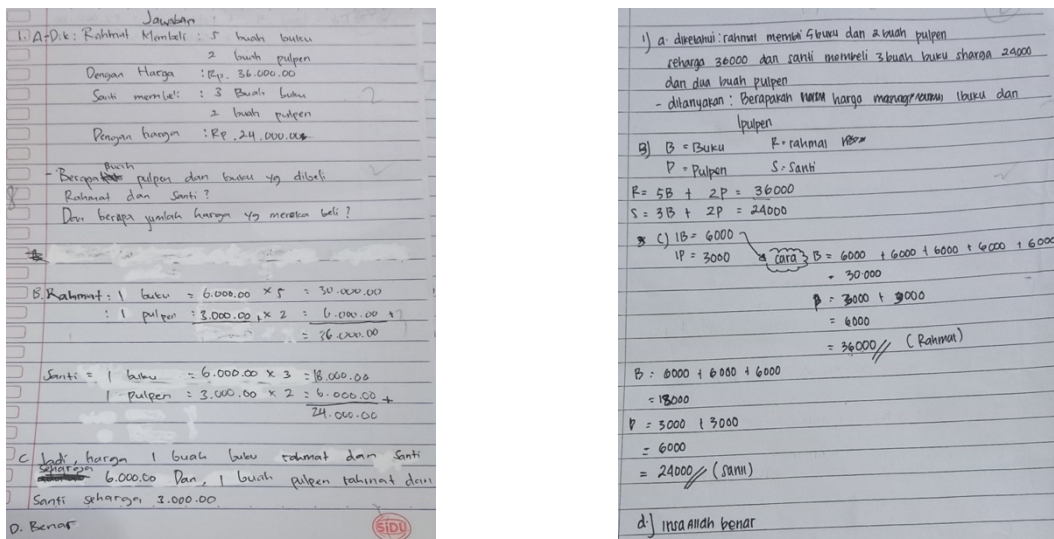 Jawaban
1. A-Dik: Rahmat Membeli : 5 buah buku
2 buah pulpen
Dengan Harga : Rp. 36.000.00
Santi membeli : 3 Buah buku
2 buah pulpen
Dengan harga : Rp. 24.000.00
- Berapa buah pulpen dan buku yg dibeli
Rahmat dan Santi?
Dan berapa jumlah harga yg mereka beli?
B. Rahmat : 1 buku = 6.000.00 × 5 = 30.000.00
: 1 pulpen : 3.000.00 × 2 = 6.000.00 +
= 36.000.00
Santi = 1 buku = 6.000.00 × 3 = 18.000.00
1 pulpen : 3.000.00 × 2 = 6.000.00 +
24.000.00
C Jadi, harga 1 buah buku rahmat dan Santi
seharga 6.000.00 Dan, 1 buah pulpen rahmat dan
Santi seharga 3.000.00
D. Benar
SIDU
1) a. diketahui : rahmat membeli 5 buku dan 2 buah pulpen
seharga 36000 dan santi membeli 3 buah buku sharga 24000
dan dua buah pulpen
- ditanyakan : Berapakah harga 1buku dan
1pulpen
B) B = Buku R = rahmat
P = Pulpen S = Santi
R = 5B + 2P = 36000
S = 3B + 2P = 24000
C) 1B = 6000
1P = 3000
cara B = 6000 + 6000 + 6000 + 6000 + 6000
= 30.000
P = 3000 + 3000
= 6000
= 36000// (Rahmat)
B = 6000 + 6000 + 6000
= 18000
P = 3000 + 3000
= 6000
= 24000// (Santi)
d.) insa Allah benar